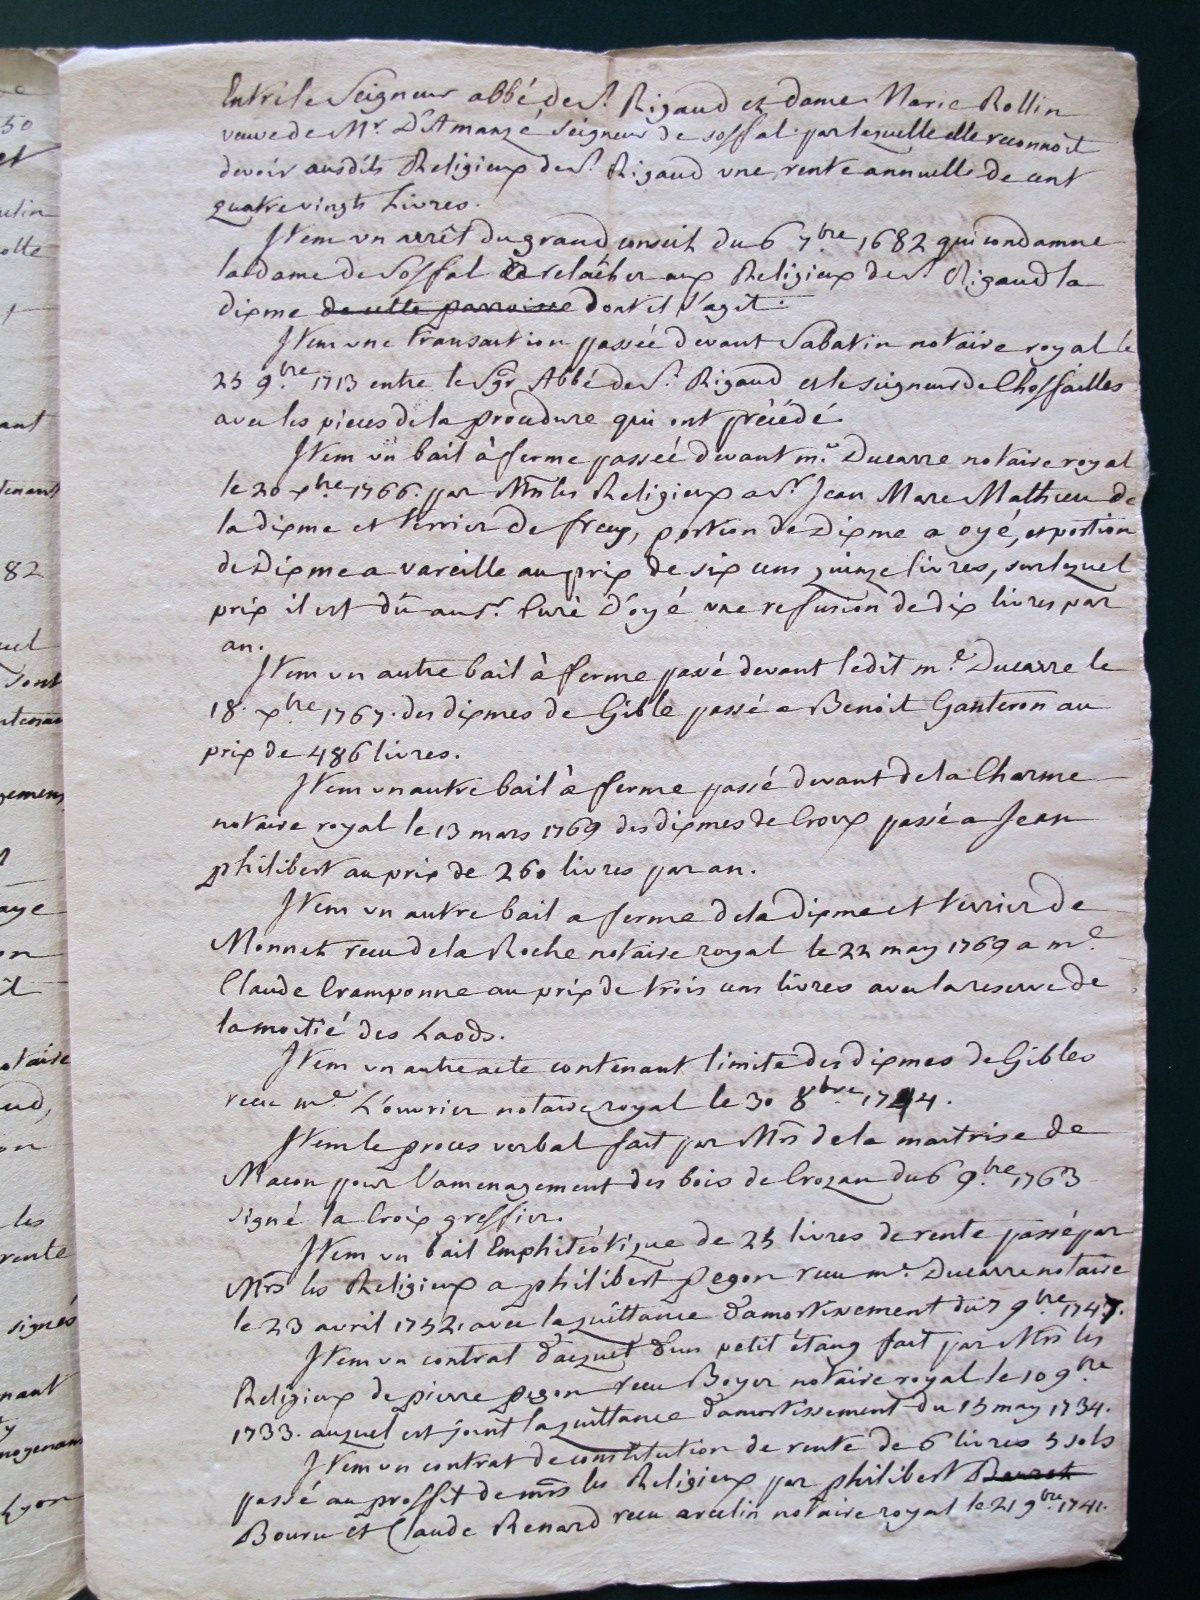 Entre le Seigneur abbé de St. Rigaud et dame Marie Rollin
veuve de Mr. D'Amanzé seigneur de soffal. par lequelle elle reconnoit
devoir ausdits Religieux de St. Rigaud une rente annuelle de cent
quatre vingts Livres.
Item un arrêt du grand conseil du 6 7.bre 1682 qui condamne
la dame de Soffal a relâcher aux Religieux de St. Rigaud la
dixme de cette parroisse dont il s'agit.
Item une transaction passée devant Sabatin notaire royal le
25 9.bre 1713 entre le Sgr Abbé de St. Rigaud et le seigneur de Choffailles
avec les pieces de la procedure qui ont précédé.
Item un bail à ferme passée devant me. Ducarre notaire royal
le 20 xbre 1766. par Mrs les Religieux a Sr. Jean Marc Mathieu de
la dixme et terrier de frey, portion de Dixme a oyé, et portion
de Dixme a vareille au prix de six cens quinze livres, sur lequel
prix il est dû au Sr. Curé D'oyé une refusion de dix livres par
an.
Item un autre bail à ferme passé devant ledit me. Ducarre le
18. xbre 1767. des dixmes de Gible passé a Benoit Ganteron au
prix de 486 livres.
Item un autre bail à ferme passé devant de la Charme
notaire royal le 13 mars 1769 des dixmes de Croux passé a Jean
philibert au prix de 260 livres par an.
Item un autre bail a ferme de la dixme et terrier de
Monnet recu de la Roche notaire royal le 22 may 1769 a me.
Claude Cramponne au prix de trois cens livres avec la reserve de
la moitié des Laods.
Item un autre acte contenant limite des dixmes de Gibles
recu me. L'ouvrier notaire royal le 30 8bre. 1744.
Item le proces verbal fait par Mrs de la maitrise de
Macon pour l'amenagement des bois de Crozan du 6 9.bre 1763
signé la Croix greffier.
Item un bail Emphitéotique de 25 livres de rente passé par
Mrs les Religieux a philibert Pegon recu me. Ducarre notaire
le 23 avril 1752. avec la quittance d'amortissement du 7 9.bre 1747.
Item un contrat d'acquet d'un petit étang fait par Mrs les
Religieux de pierre pegon recu Boyer notaire royal le 10 9.bre
1733. auquel est joint la quittance d'amortissement du 15 may 1734.
Item un contrat de constitution de rente de 6 livres 5 sols
passé au proffit de mrs les Religieux par philibert
Bouru et Claude Renard recu arcelin notaire royal le 21 9.bre 1741.